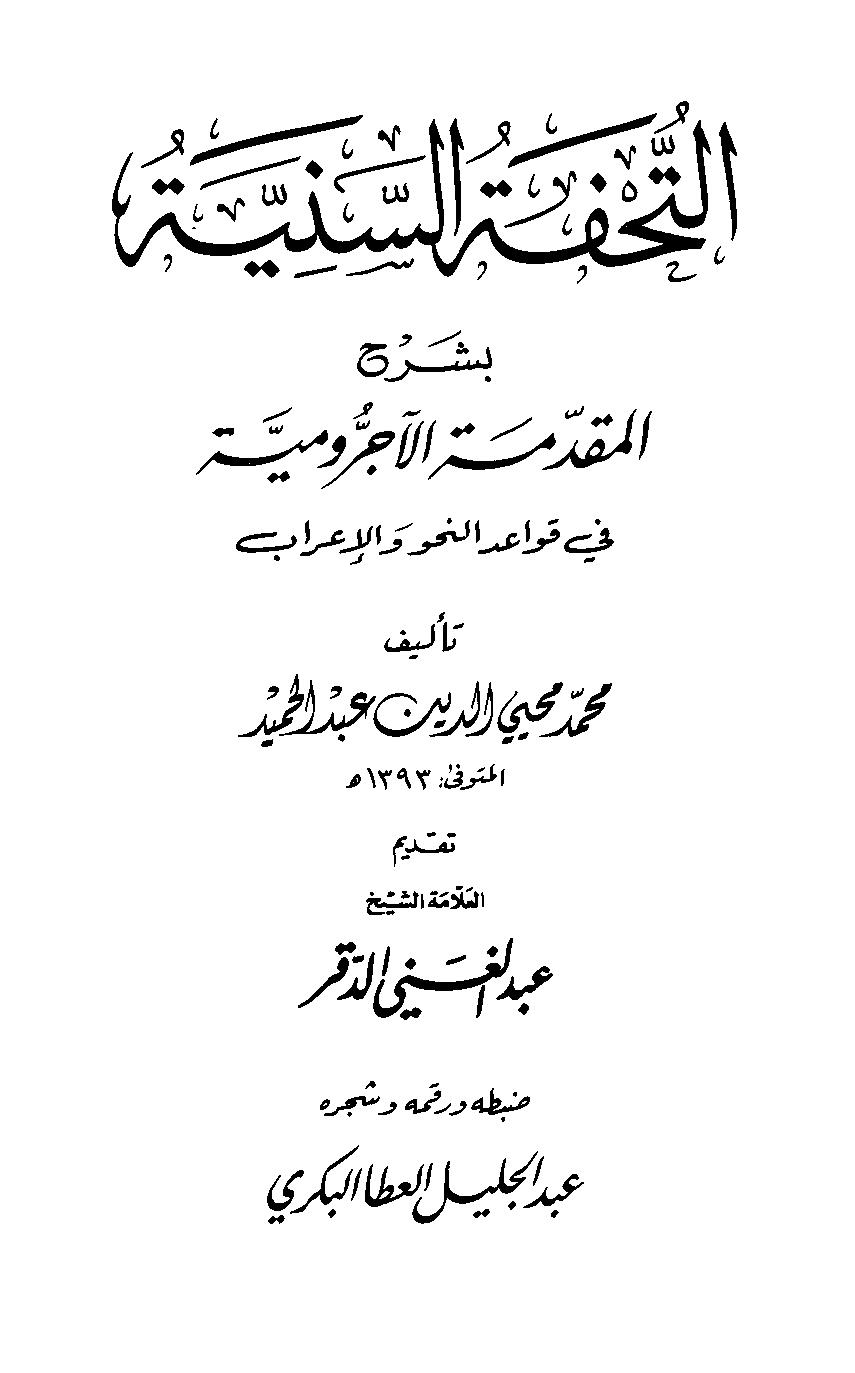 التُّحْفَةُ السَّنِيَّةُ
بشَرْح
المقدّمَة الآجرُّوميَّة
في قواعد النحو وَالإعراب
تأليف
محمّد محيي الدين عبْد الحميْد
المتوفىٰ: ١٣٩٣ ه
تقديم
العَلّامَة الشيْخ
عبد الغَني الدّقر
ضبطه ورقمه وشجره
عبد الجليل العطا البكري